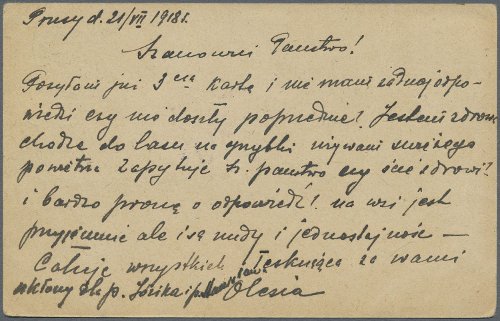 Prusy d. 21/VII 1918 r.
Szanowni Państwo!
Posyłam już 3 cią kartę i nie mam żadnej odpo-
wiedzi czy nie doszły poprzednie? Jestem zdrowa
chodzę do lasu na grzybki używam świeżego
powietrza Zapytuję Sz. państwo czy są zdrowi?
i bardzo proszę o odpowiedź! na wsi jest
przyjemnie ale i są nudy i jednostajność –
Całuję wszystkich Tęskniąca za wami
ukłony dla p. Józika i p.
Olesia